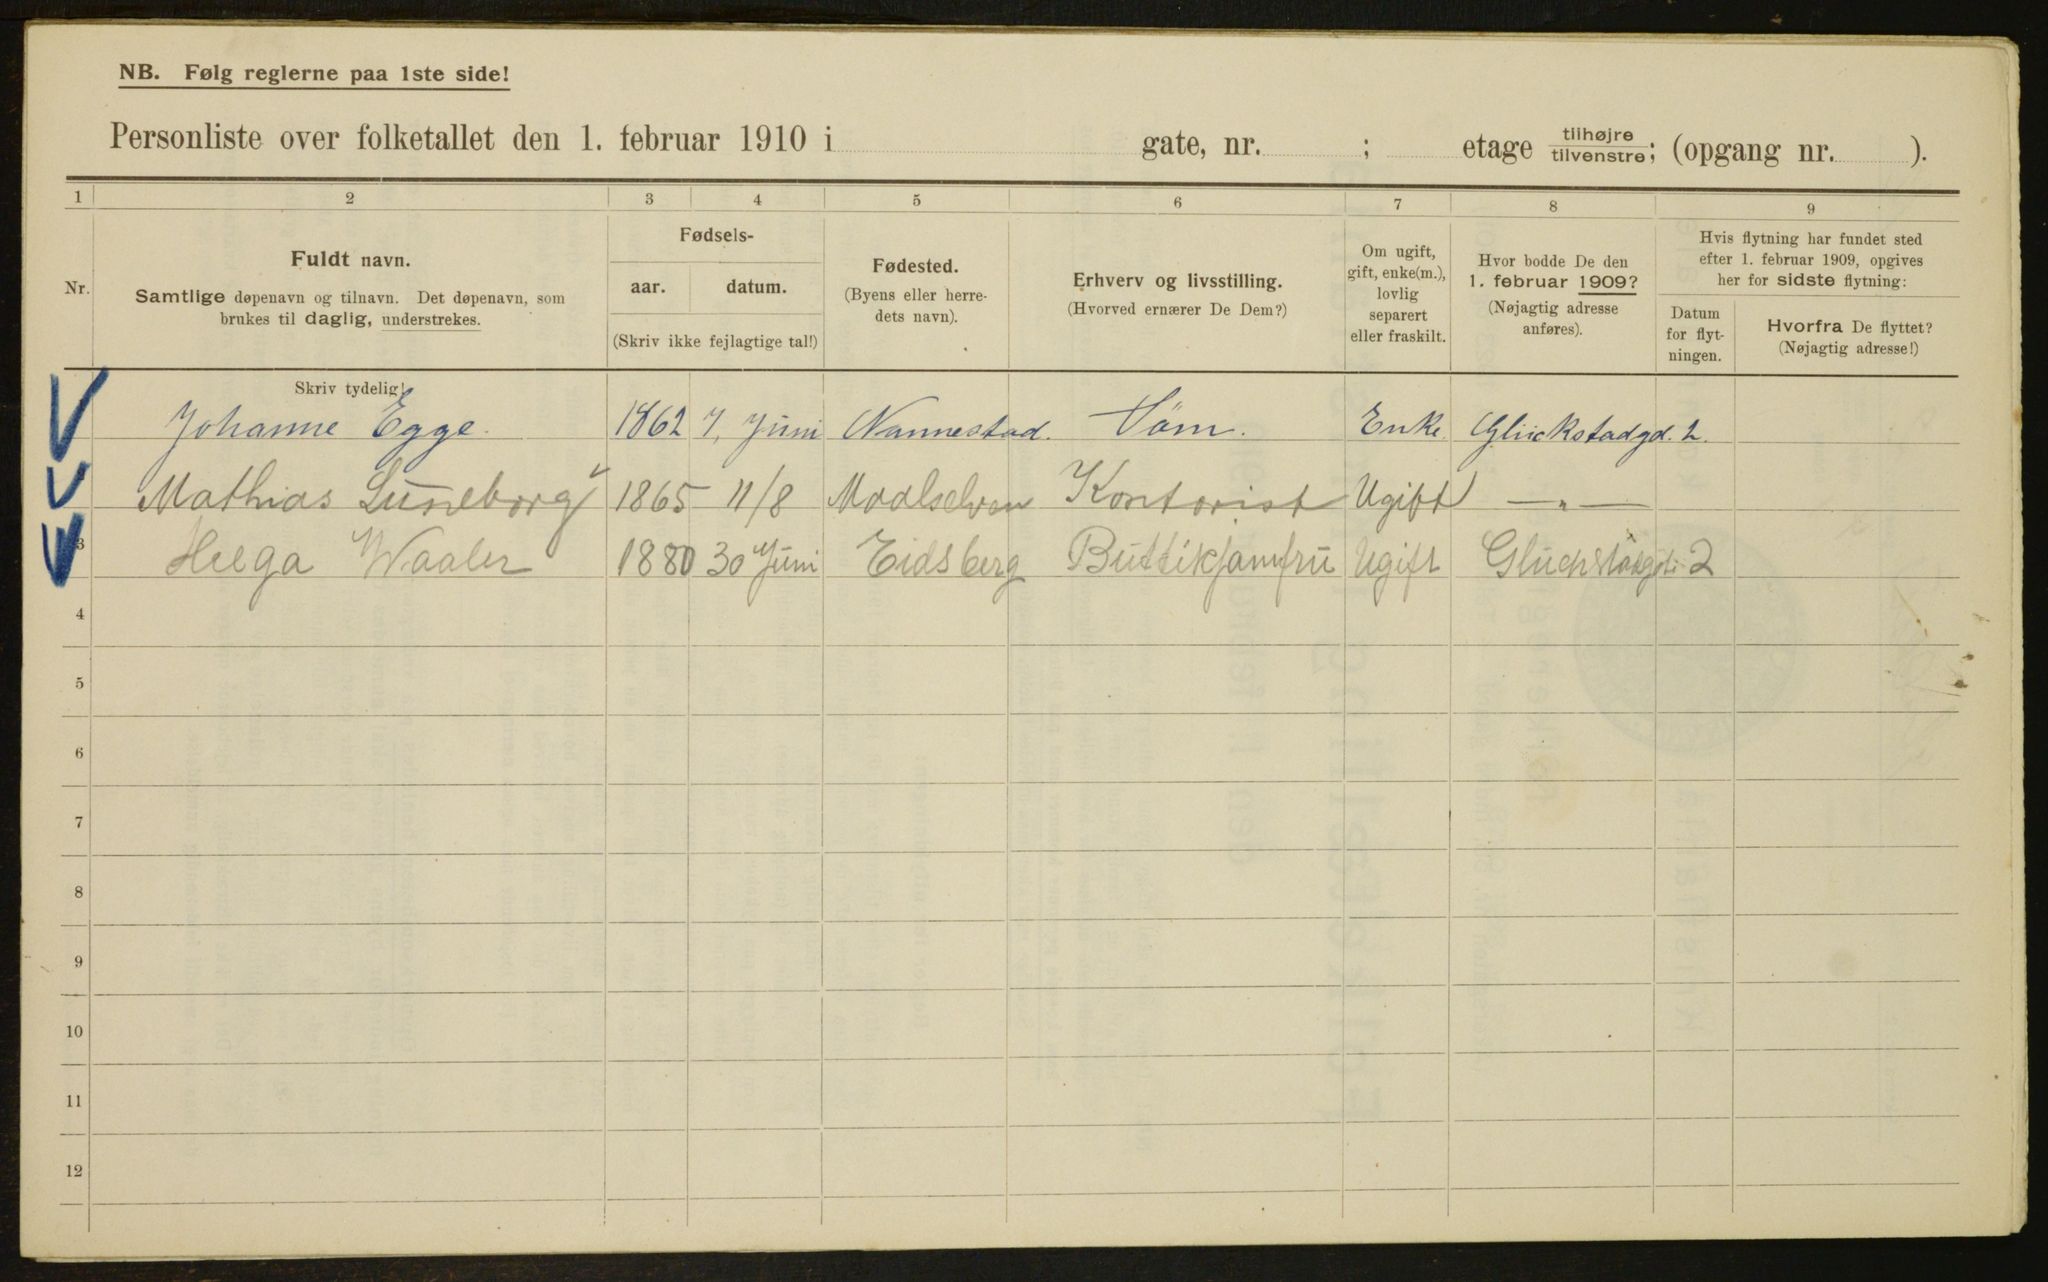 NB. Følg reglerne paa 1ste side!
Personliste over folketallet den 1. februar 1910 i gate, nr. ; etage tilhøjre/tilvenstre; (opgang nr. ).
1 2 3 4 5 6 7 8 9
Nr.
Fuldt navn.
Samtlige døpenavn og tilnavn. Det døpenavn, som
brukes til daglig, understrekes.
Skriv tydelig!
Fødsels-
aar. datum.
(Skriv ikke fejlagtige tal!)
Fødested.
(Byens eller herre-
dets navn).
Erhverv og livsstilling.
(Hvorved ernærer De Dem?)
Om ugift,
gift, enke(m.),
lovlig
separert
eller fraskilt.
Hvor bodde De den
1. februar 1909?
(Nøjagtig adresse
anføres).
Hvis flytning har fundet sted
efter 1. februar 1909, opgives
her for sidste flytning:
Datum
for flyt-
ningen.
Hvorfra De flyttet?
(Nøjagtig adresse!)
Johanne Egge. 1862 7, Juni Nannestad. Söm. Enke. Glückstadgd. 2.
Mathias Luneborg 1865 11/8 Maalselven Kontorist Ugift —„—
3 Helga Waaler 1880 30 Juni Eidsberg Buttikjomfru Ugift 2
4
5
6
7
8
9
10
11
12